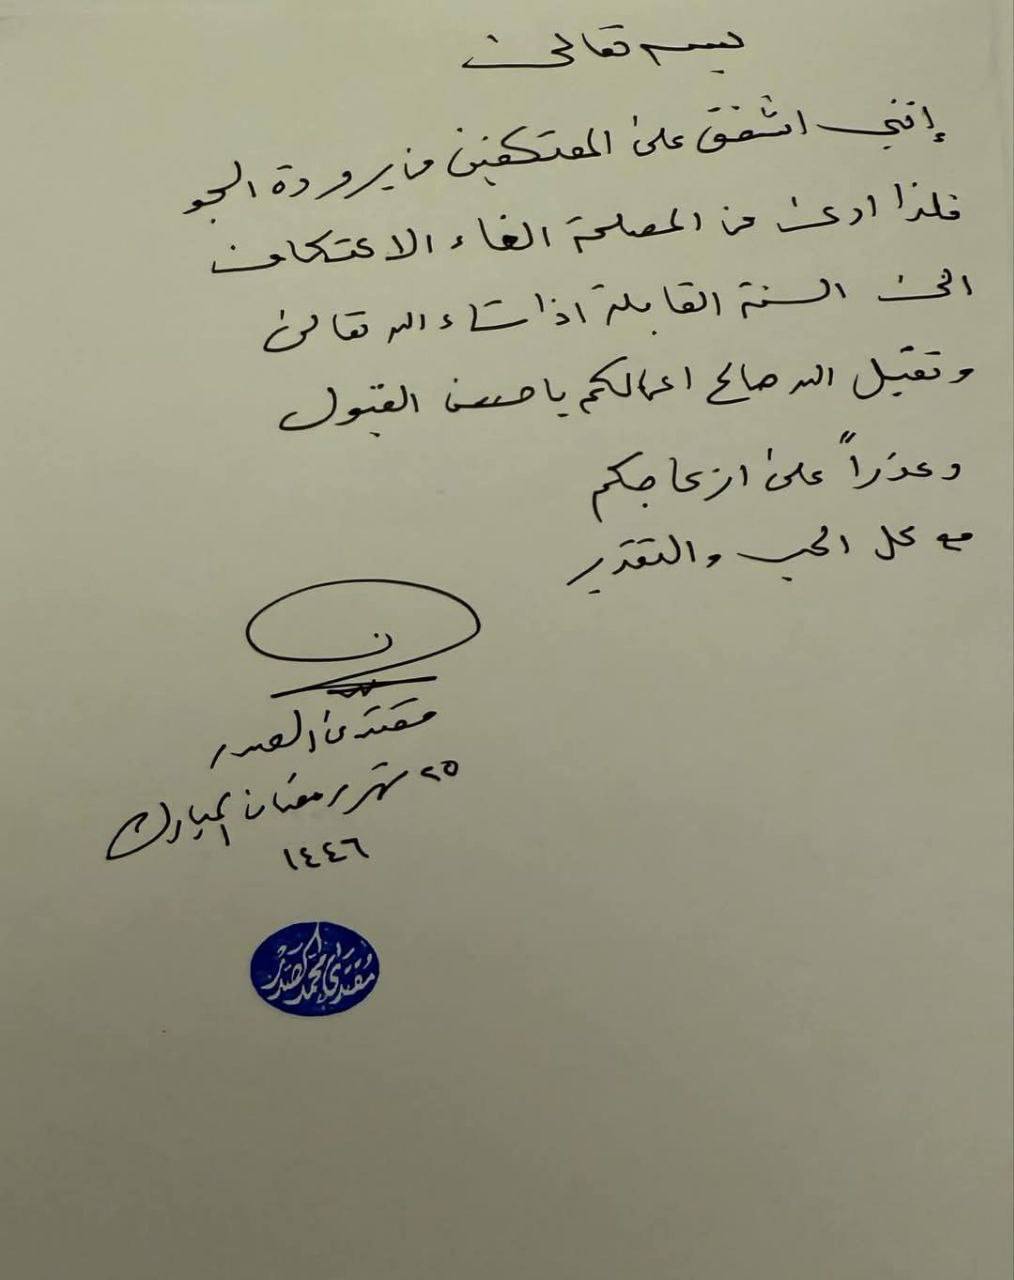 بسمه تعالى
إنني اشفق على المعتكفين من برودة الجو
فلذا ارى من المصلحة الغاء الاعتكاف
الى السنة القابلة اذا شاء الله تعالى
وتقبل الله صالح اعمالكم باحسن القبول
وعذراً على ازعاجكم
مع كل الحب والتقدير
مقتدى الصدر
٢٥ شهر رمضان المبارك
١٤٤٦
مقتدى محمد الصدر